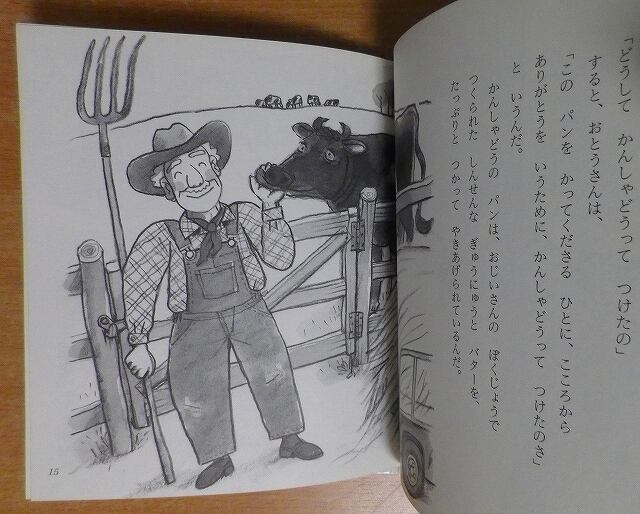 「どうして　かんしゃどうって　つけたの」
すると、おとうさんは、
「この　パンを　かってくださる　ひとに、こころから
ありがとうを　いうために、かんしゃどうって　つけたのさ」
と　いうんだ。
かんしゃどうの　パンは、おじいさんの　ぼくじょうで
つくられた　しんせんな　ぎゅうにゅうと　バターを、
たっぷりと　つかって　やきあげられているんだ。
15